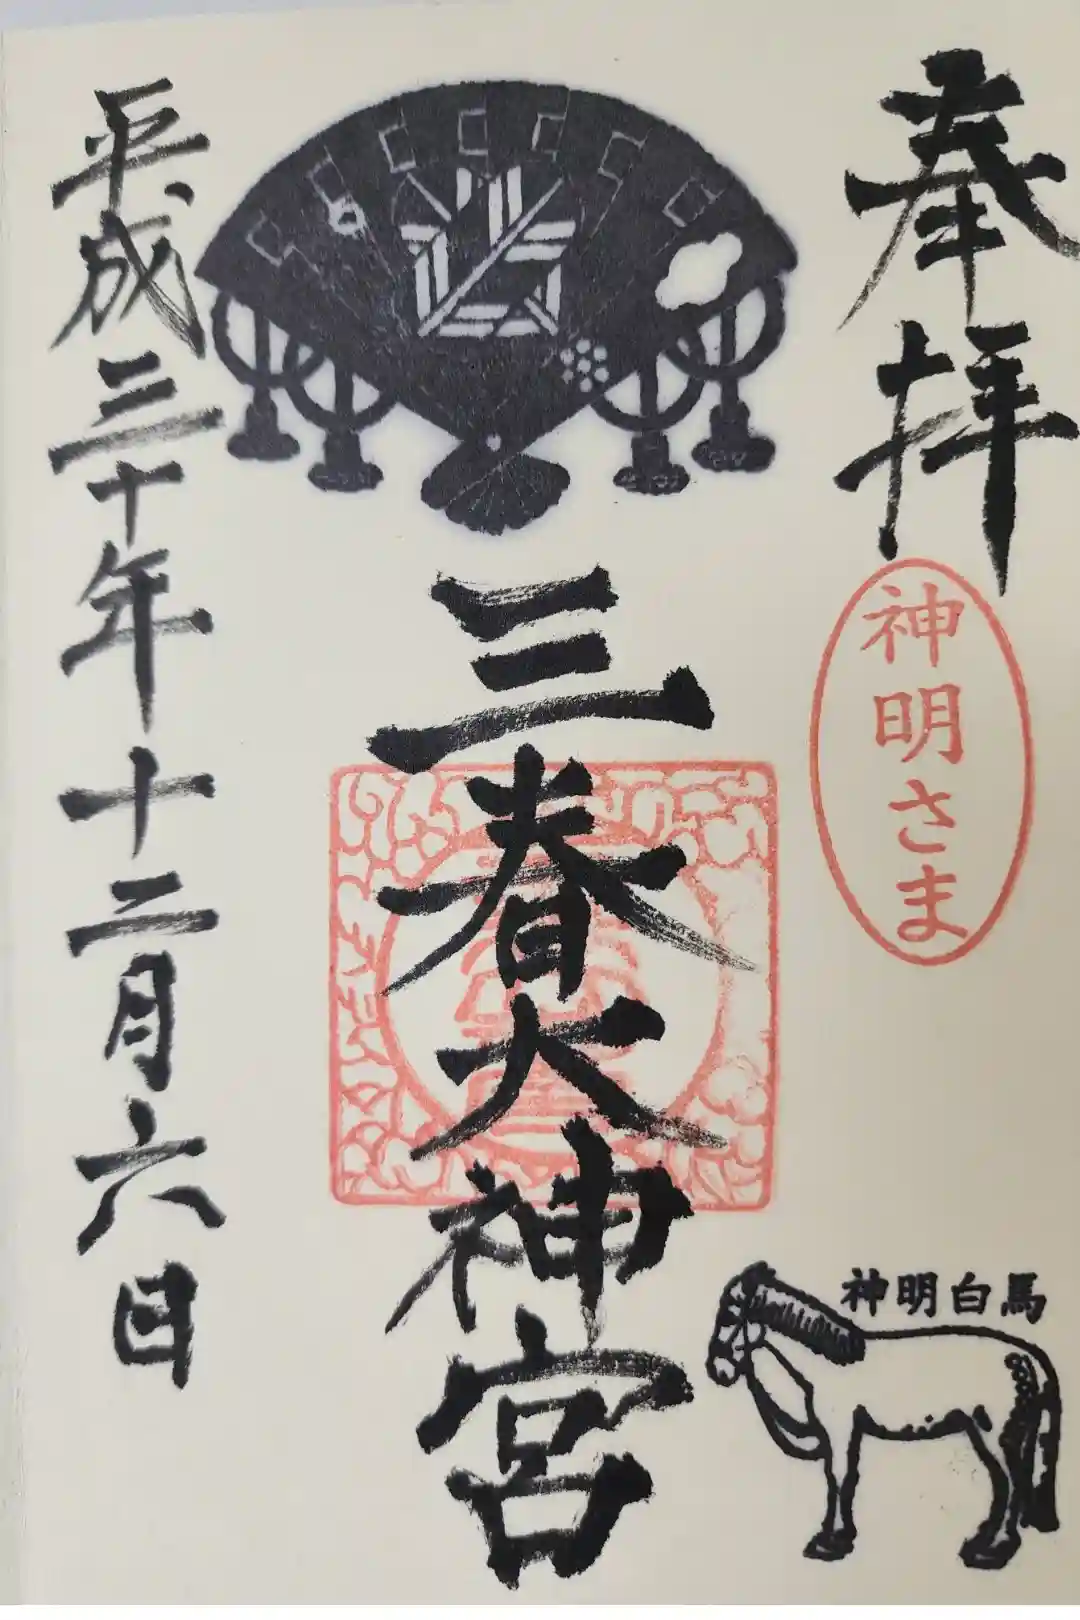 奉拝
神明さま
神明白馬
三春大神宮
平成三十年十二月六日